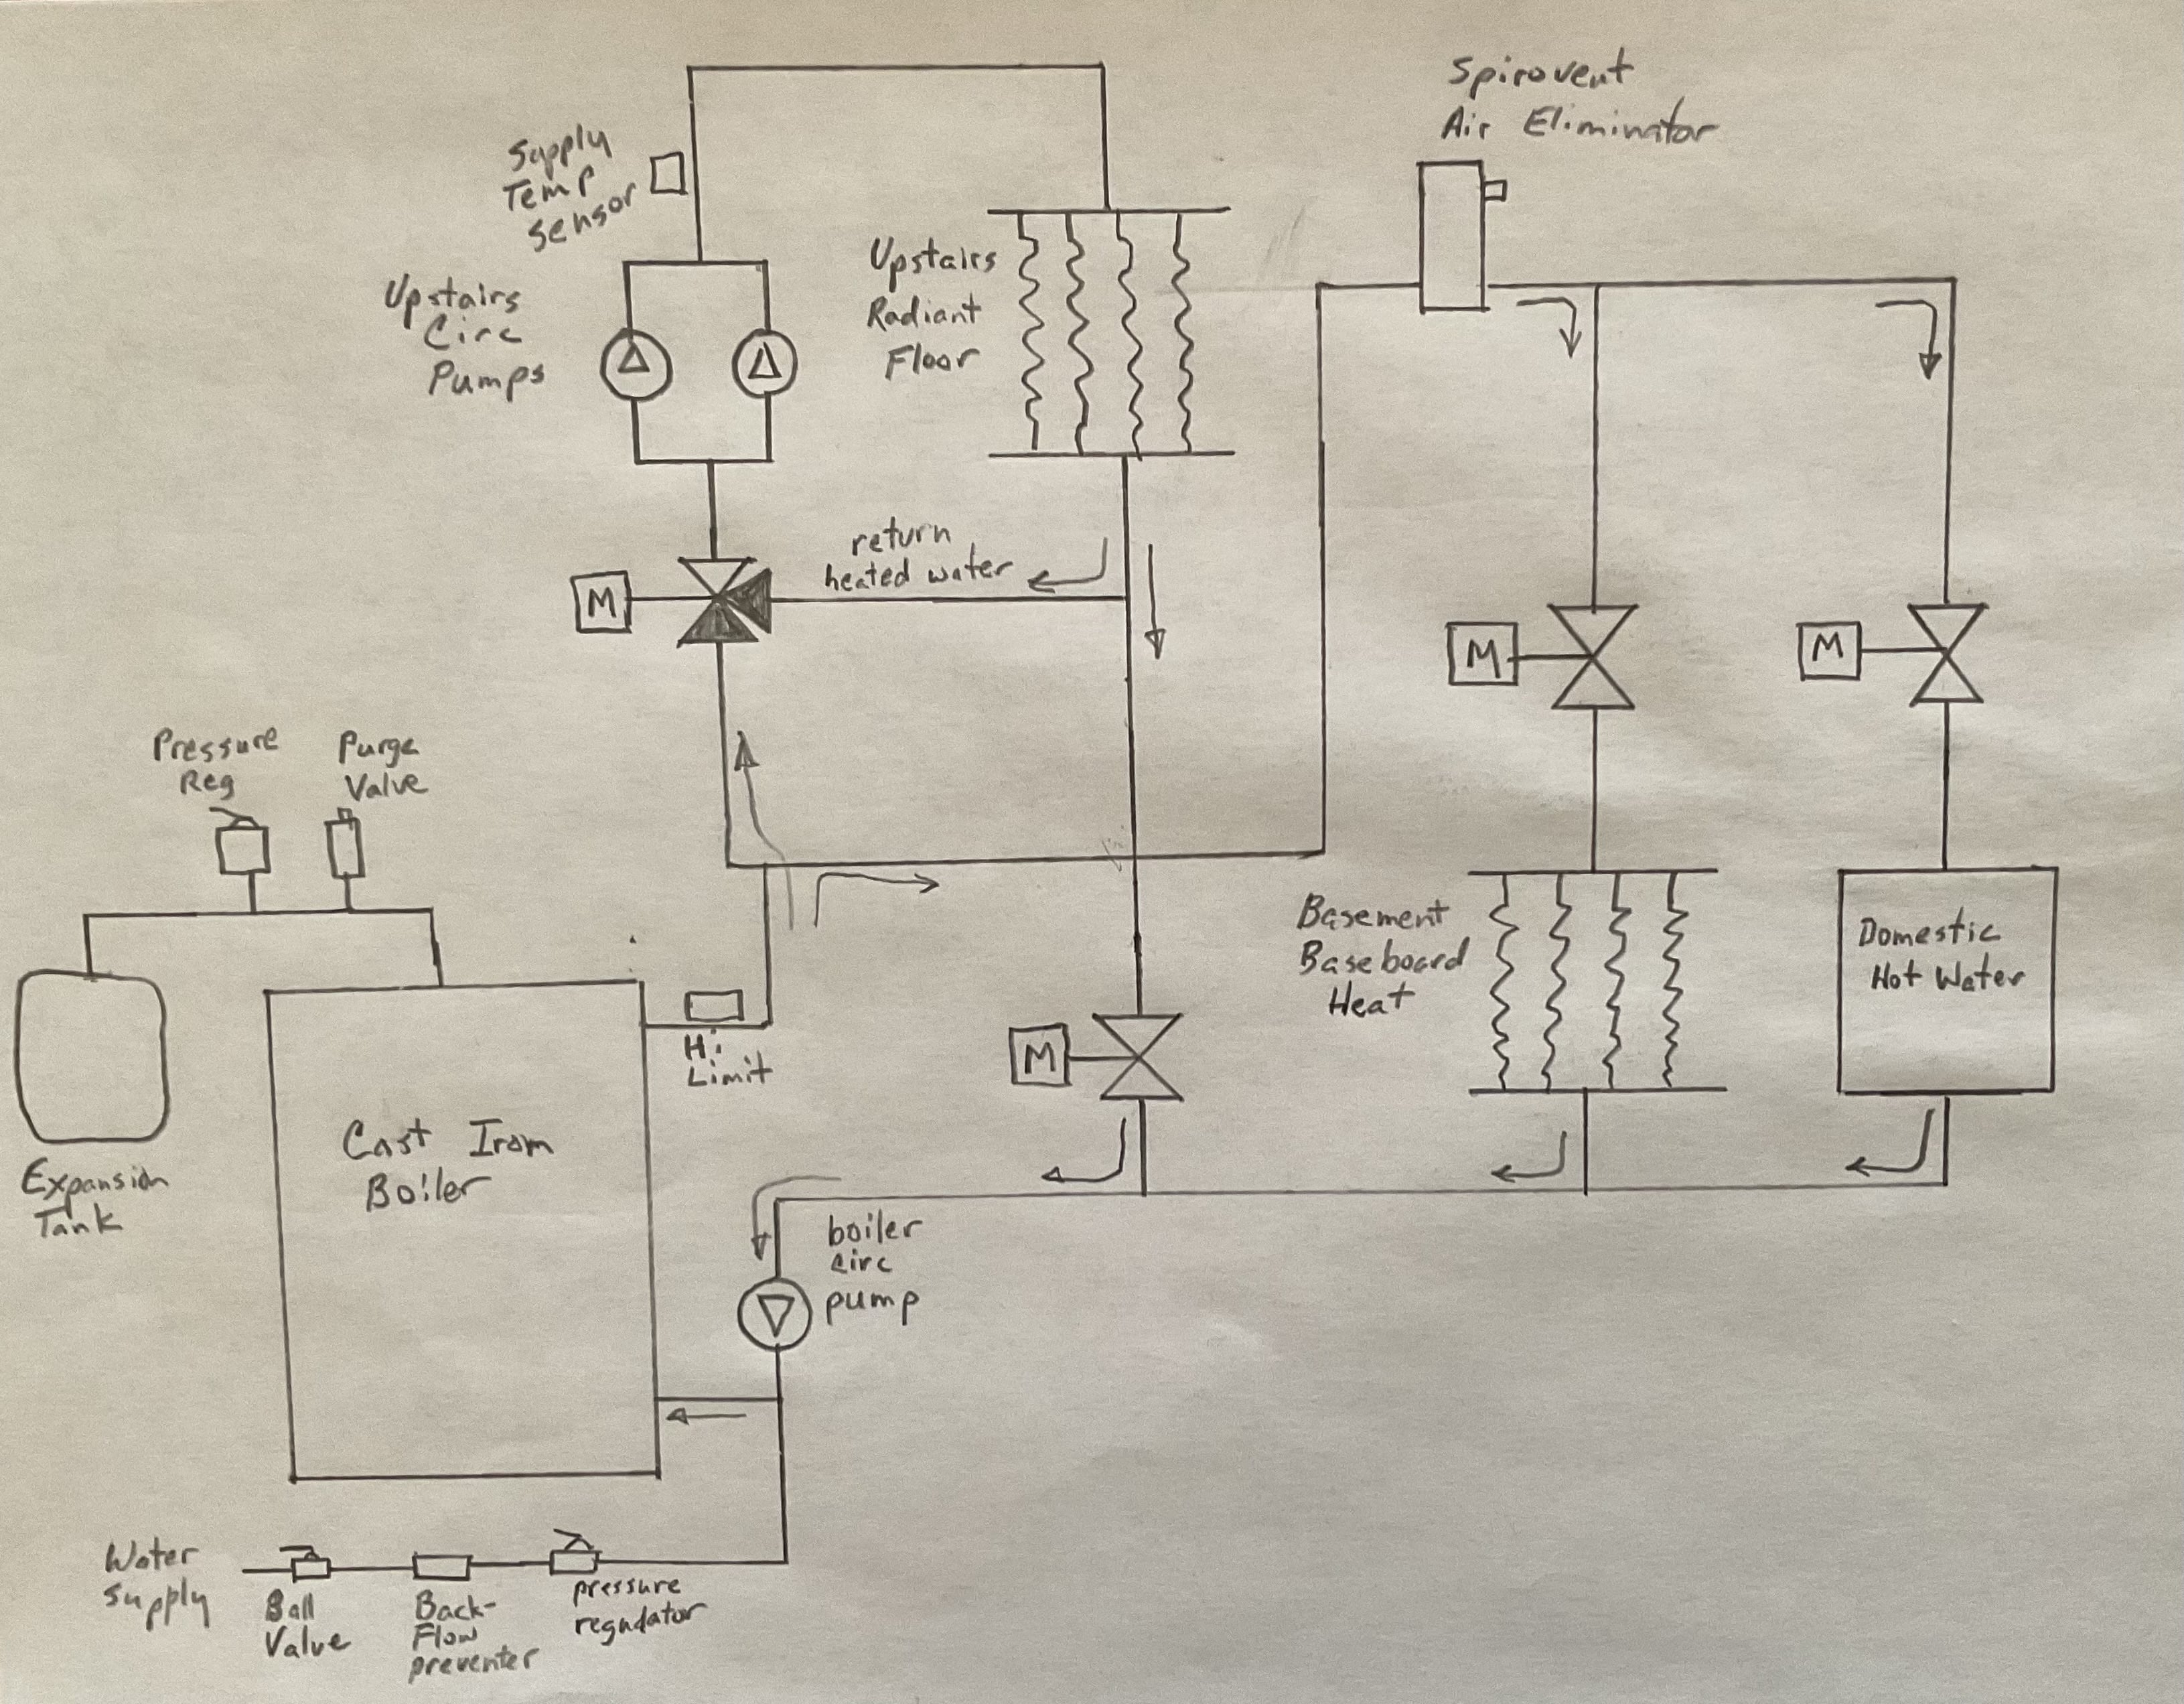 Spirovent
Air Eliminator
Supply
Temp
Sensor
Upstairs
Circ
Pumps
Upstairs
Radiant
Floor
return
heated water
M
M
M
Pressure
Reg
Purge
Valve
Basement
Baseboard
Heat
Domestic
Hot Water
Hi
Limit
M
Cast Iron
Boiler
Expansion
Tank
boiler
circ
pump
Water
Supply
Ball
Valve
Back-
Flow
preventer
pressure
regudator